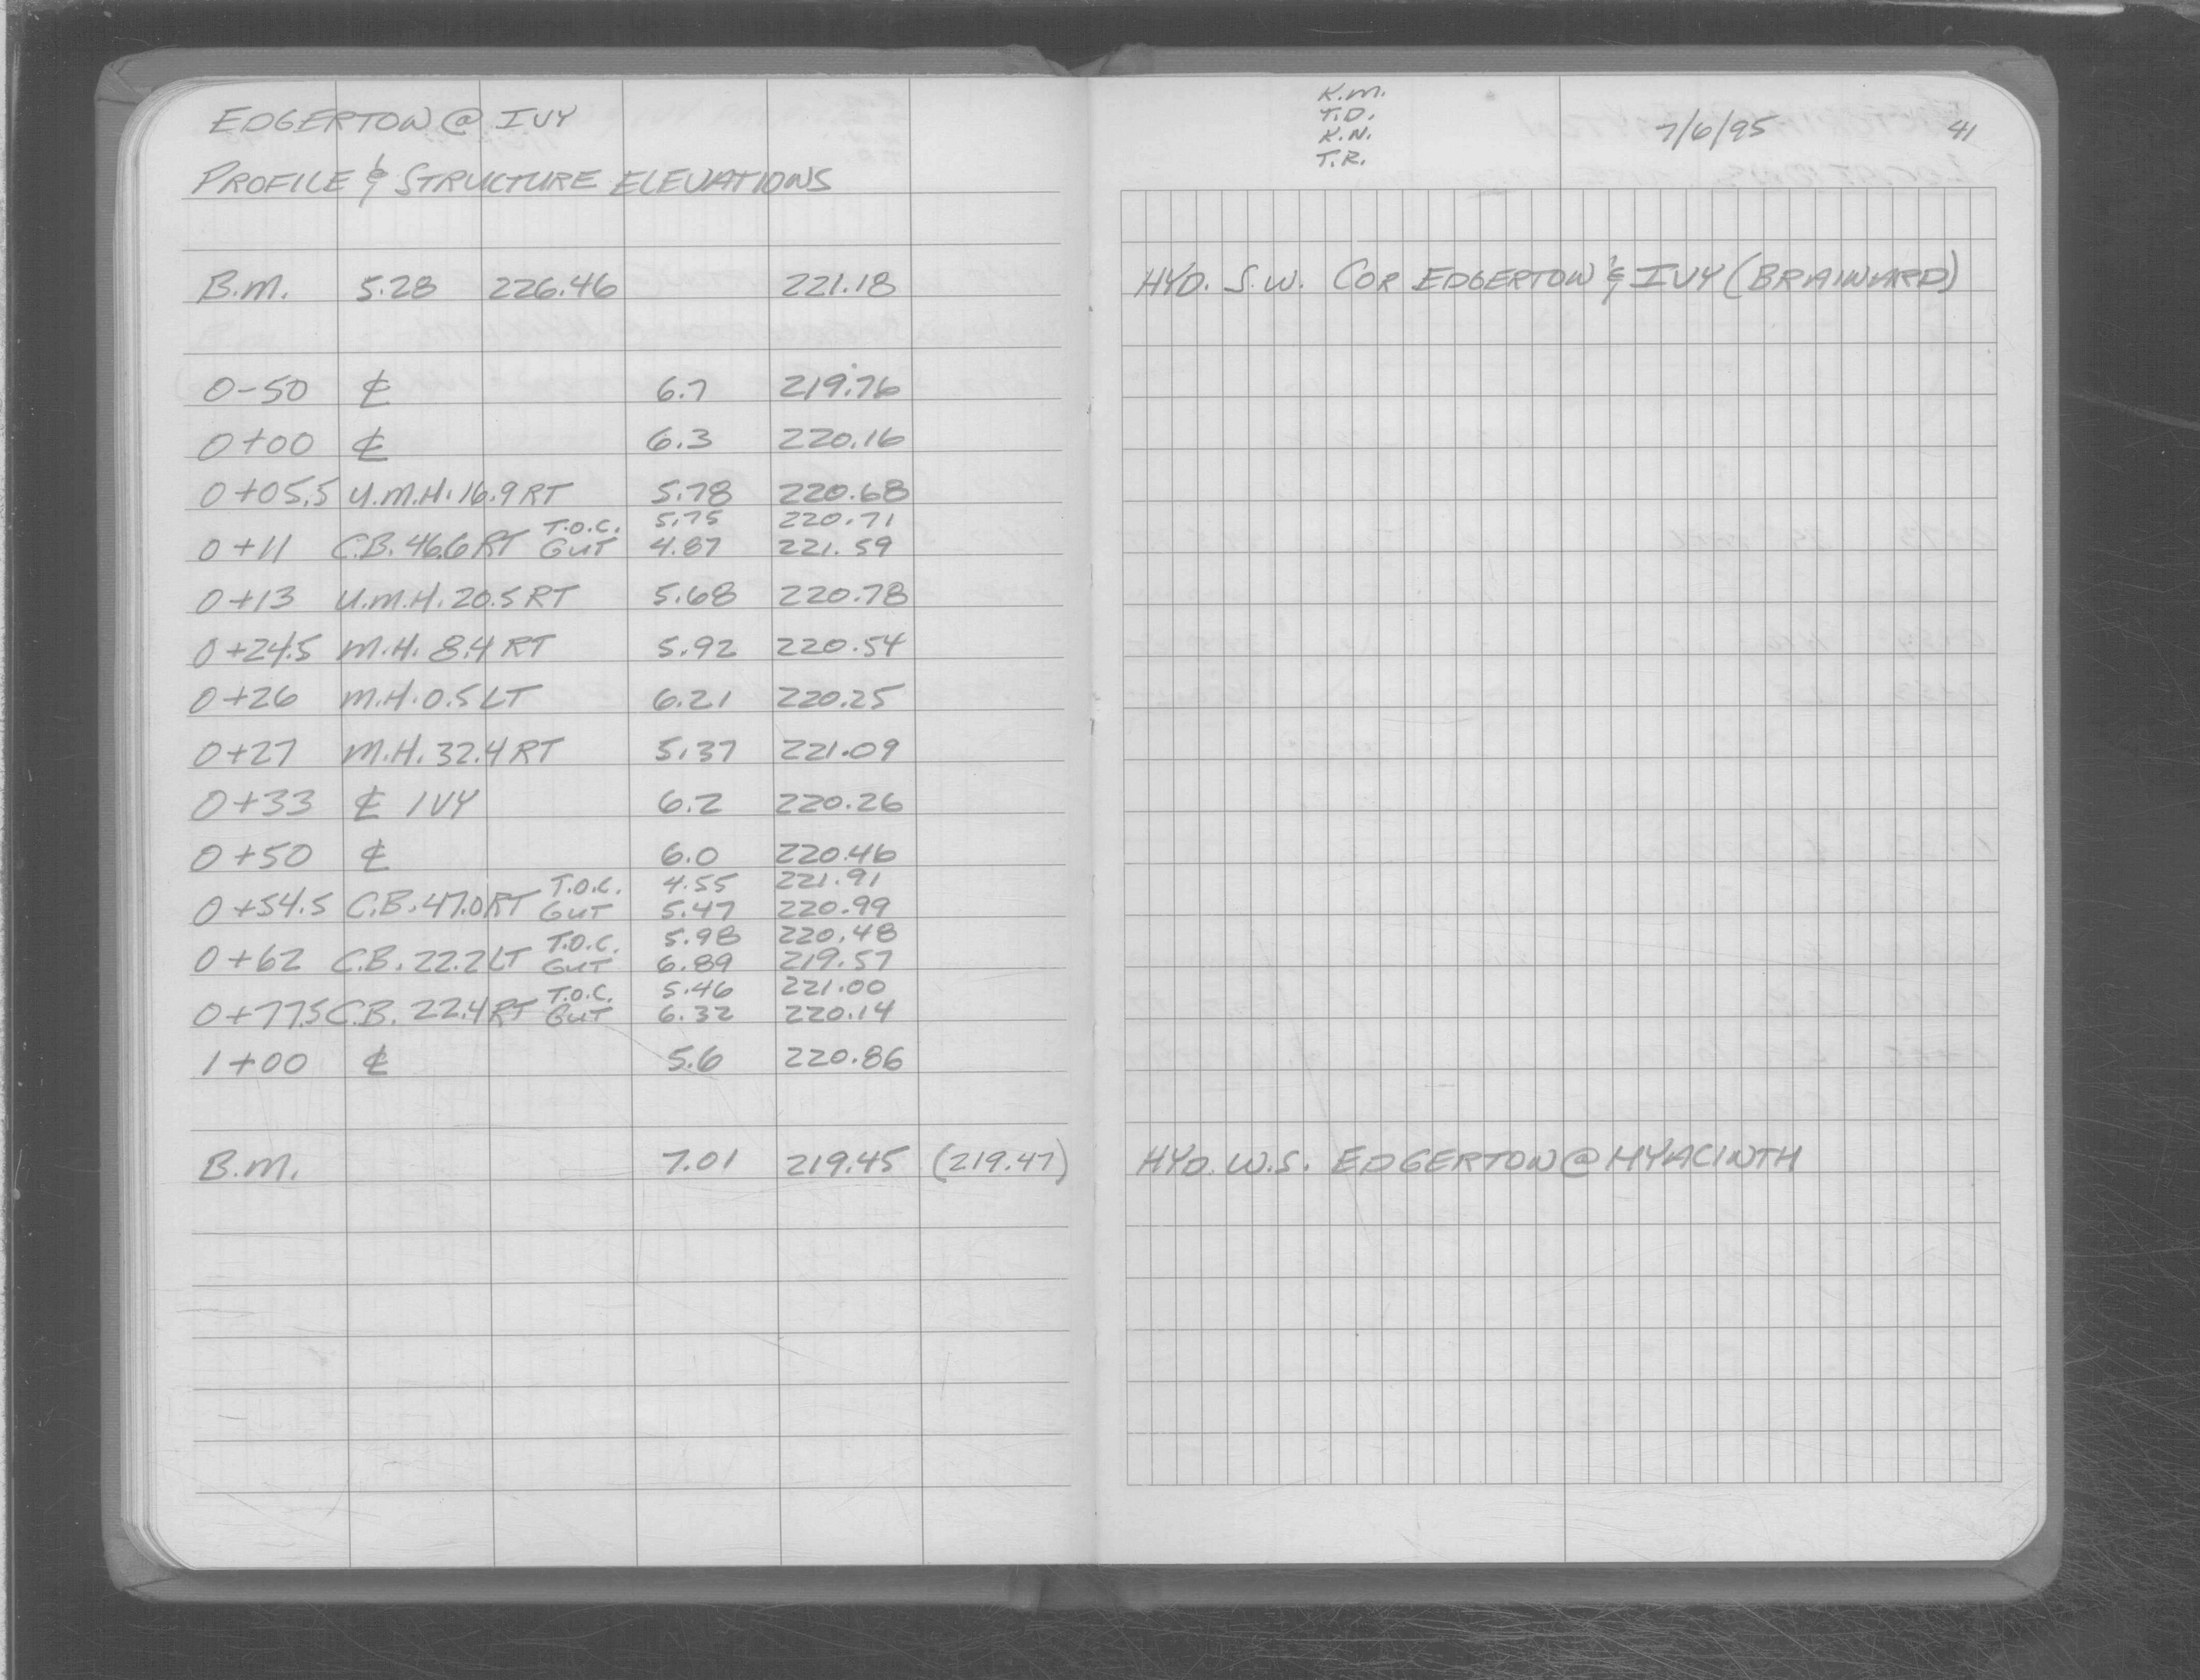 EDGERTON @ IVY
PROFILE & STRUCTURE ELEVATIONS
B.M. 5.28 226.46 221.18
0-50 ℄ 6.7 219.76
0+00 ℄ 6.3 220.16
0+05.5 U.M.H. 16.9 RT 5.78 220.68
T.O.C. 5.75 220.71
0+11 C.B. 46.6 RT GUT 4.87 221.59
0+13 U.M.H. 20.5 RT 5.68 220.78
0+24.5 M.H. 8.4 RT 5.92 220.54
0+26 M.H. 0.5 LT 6.21 220.25
0+27 M.H. 32.4 RT 5.37 221.09
0+33 ℄ IVY 6.2 220.26
0+50 ℄ 6.0 220.46
T.O.C. 4.55 221.91
0+54.5 C.B. 47.0 RT GUT 5.47 220.99
T.O.C. 5.98 220.48
0+62 C.B. 22.2 LT GUT 6.89 219.57
T.O.C. 5.46 221.00
0+77.5 C.B. 22.4 RT GUT 6.32 220.14
1+00 ℄ 5.6 220.86
B.M. 7.01 219.45 (219.47)
K.M.
T.D.
K.N.
T.R.
7/6/95 41
HYD. S.W. COR EDGERTON & IVY (BRAINARD)
HYD. W.S. EDGERTON @ HYACINTH